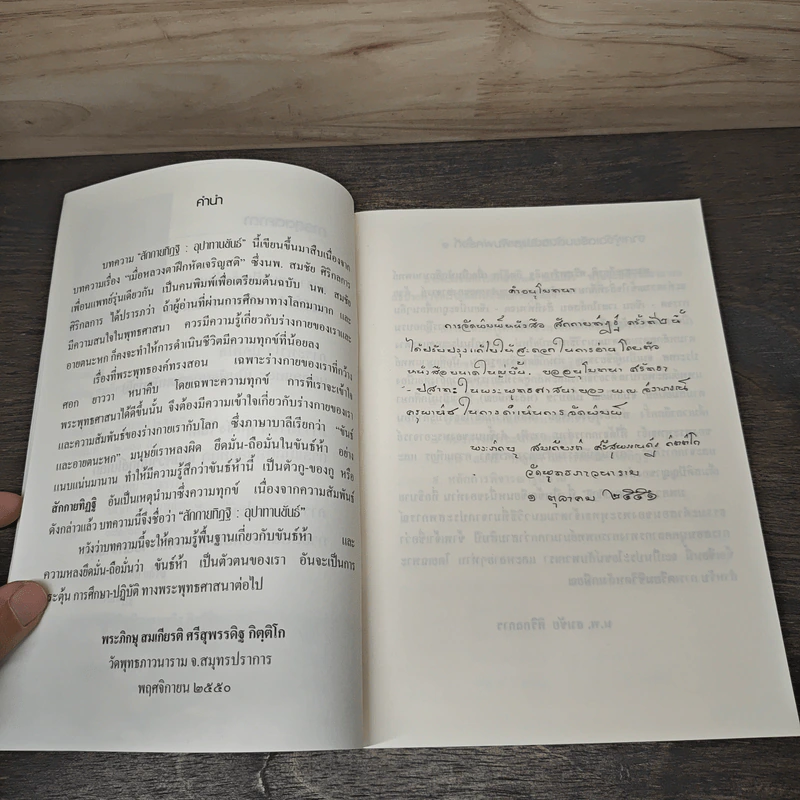 คำนำ
บทความ “สักกายทิฏฐิ : อุปาทานขันธ์” นี้เขียนขึ้นมาสืบเนื่องจาก
บทความเรื่อง “เมื่อหลวงตาฝึกหัดเจริญสติ” ซึ่งนพ. สมชัย ศิริกลการ
เพื่อนแพทย์รุ่นเดียวกัน เป็นคนพิมพ์เพื่อเตรียมต้นฉบับ นพ. สมชัย
ศิริกลการ ได้ปรารภว่า ถ้าผู้อ่านที่ผ่านการศึกษาทางโลกมามาก และ
มีความสนใจในพุทธศาสนา ควรมีความรู้เกี่ยวกับร่างกายของเราและ
อายตนะหก ก็คงจะทำให้การดำเนินชีวิตมีความทุกข์ที่น้อยลง
เรื่องที่พระพุทธองค์ทรงสอน เฉพาะร่างกายของเราที่กว้าง
ศอก ยาววา หนาคืบ โดยเฉพาะความทุกข์ การที่เราจะเข้าใจ
พระพุทธศาสนาได้ดีขึ้นนั้น จึงต้องมีความเข้าใจเกี่ยวกับร่างกายของเรา
และความสัมพันธ์ของร่างกายเรากับโลก ซึ่งภาษาบาลีเรียกว่า “ขันธ์
และอายตนะหก” มนุษย์เราหลงผิด ยึดมั่น-ถือมั่นในขันธ์ห้า อย่าง
แนบแน่นมานาน ทำให้มีความรู้สึกว่าขันธ์ห้านี้ เป็นตัวกู-ของกู หรือ
สักกายทิฏฐิ อันเป็นเหตุนำมาซึ่งความทุกข์ เนื่องจากความสัมพันธ์
ดังกล่าวแล้ว บทความนี้จึงชื่อว่า “สักกายทิฏฐิ : อุปาทานขันธ์”
หวังว่าบทความนี้จะให้ความรู้พื้นฐานเกี่ยวกับขันธ์ห้า และ
ความหลงยึดมั่น-ถือมั่นว่า ขันธ์ห้า เป็นตัวตนของเรา อันจะเป็นการ
ระตุ้น การศึกษา-ปฏิบัติ ทางพระพุทธศาสนาต่อไป
พระภิกษุ สมเกียรติ ศรีสุพรรดิฐ กิตฺติโก
วัดพุทธภาวนาราม จ.สมุทรปราการ
พฤศจิกายน ๒๕๕๐
คำอนุโมทนา
การจัดพิมพ์หนังสือ สักกายทิฏฐิ ครั้งที่ ๒ นี้
ได้ปรับปรุงแก้ไขให้สะดวกในการอ่าน โดยตัว
หนังสือขนาดใหญ่ขึ้น. ขออนุโมทนา ศรัทธา
- ปสาทะ ในพระพุทธศาสนาของ
ในการดำเนินการจัดพิมพ์
พระภิกษุ สมเกียรติ ศรีสุพรรดิฐ กิตฺติโก
วัดพุทธภาวนาราม
๑ ตุลาคม ๒๕๕๑